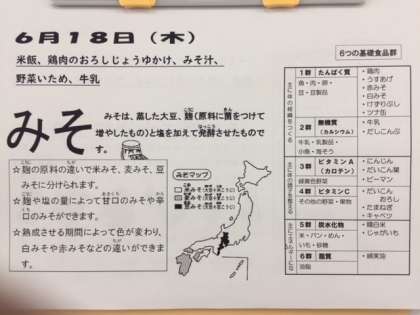 6月18日(木)
米飯、鶏肉のおろしじょうゆかけ、みそ汁、
野菜いため、牛乳
みそ
みそは、蒸した大豆、麹(原料に菌をつけて
増やしたもの)と塩を加えて発酵させたもので
す。
☆麹の原料の違いで米みそ、麦みそ、豆
みそに分けられます。
☆麹や塩の量によって甘口のみそや辛
口のみそができます。
☆熟成させる期間によって色が変わり、
白みそや赤みそなどの違いができま
す。
みそマップ
6つの基礎食品群
1群 たんぱく質
魚・肉・卵・
豆・豆製品
・鶏肉
・うすあげ
・赤みそ
・白みそ
・けずりぶし
・ツナ缶
2群 無機質
(カルシウム)
牛乳・乳製品・
小魚・海そう
・牛乳
・だしこんぶ
3群 ビタミンA
(カロテン)
緑黄色野菜
・にんじん
・さやいんげん
・葉だいこん
4群 ビタミンC
その他の野菜・果物
・だいこん
おろし
・たまねぎ
・キャベツ
5群 炭水化物
米・パン・めん・
いも・砂糖
・精白米
・じゃがいも
6群 脂質
油脂
・綿実油